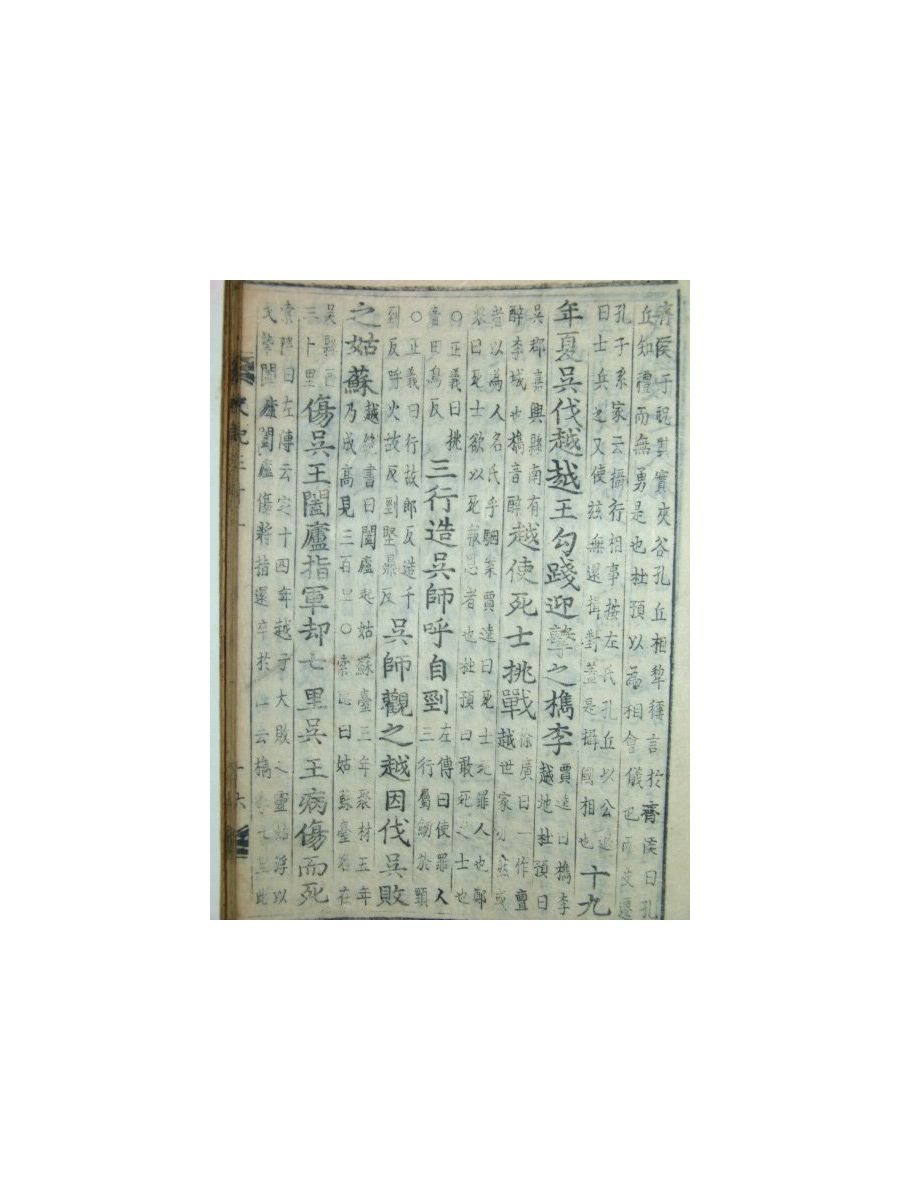 齊侯于祝其實夾谷孔丘相犁彌言於齊侯曰孔
丘知禮而無勇是也杜預以爲相會儀也而史遷
孔子系家云攝行相事按左氏孔丘以公退
曰士兵之又使兹無還揖對蓋是攝國相也
十九
年夏吳伐越越王勾踐迎擊之檇李
賈逵曰檇李
越地杜預曰
吳郡嘉興縣南有
醉李城也檇音醉
越使死士挑戰
徐廣曰一作亶
越世家亦然或
者以爲人名氏乎駰案賈逵曰死士死罪人也鄭
衆曰死士欲以死報恩者也杜預曰敢死之士也
〇正義曰挑
音田鳥反
三行造吳師呼自剄
左傳曰使罪人
三行屬劒於頸
〇正義曰行故郎反造千
到反呼火故反剄堅鼎反
吳師觀之越因伐吳敗
之姑蘇
越絶書曰闔廬起姑蘇臺三年聚材五年
乃成高見三百里〇索隱曰姑蘇臺名在
吳縣西
三十里
傷吳王闔廬指軍却七里吳王病傷而死
索隱曰左傳云定十四年越子大敗之靈姑浮以
戈擊闔廬闔廬傷將指還卒於 云檇李七里此
史記三十一
十六